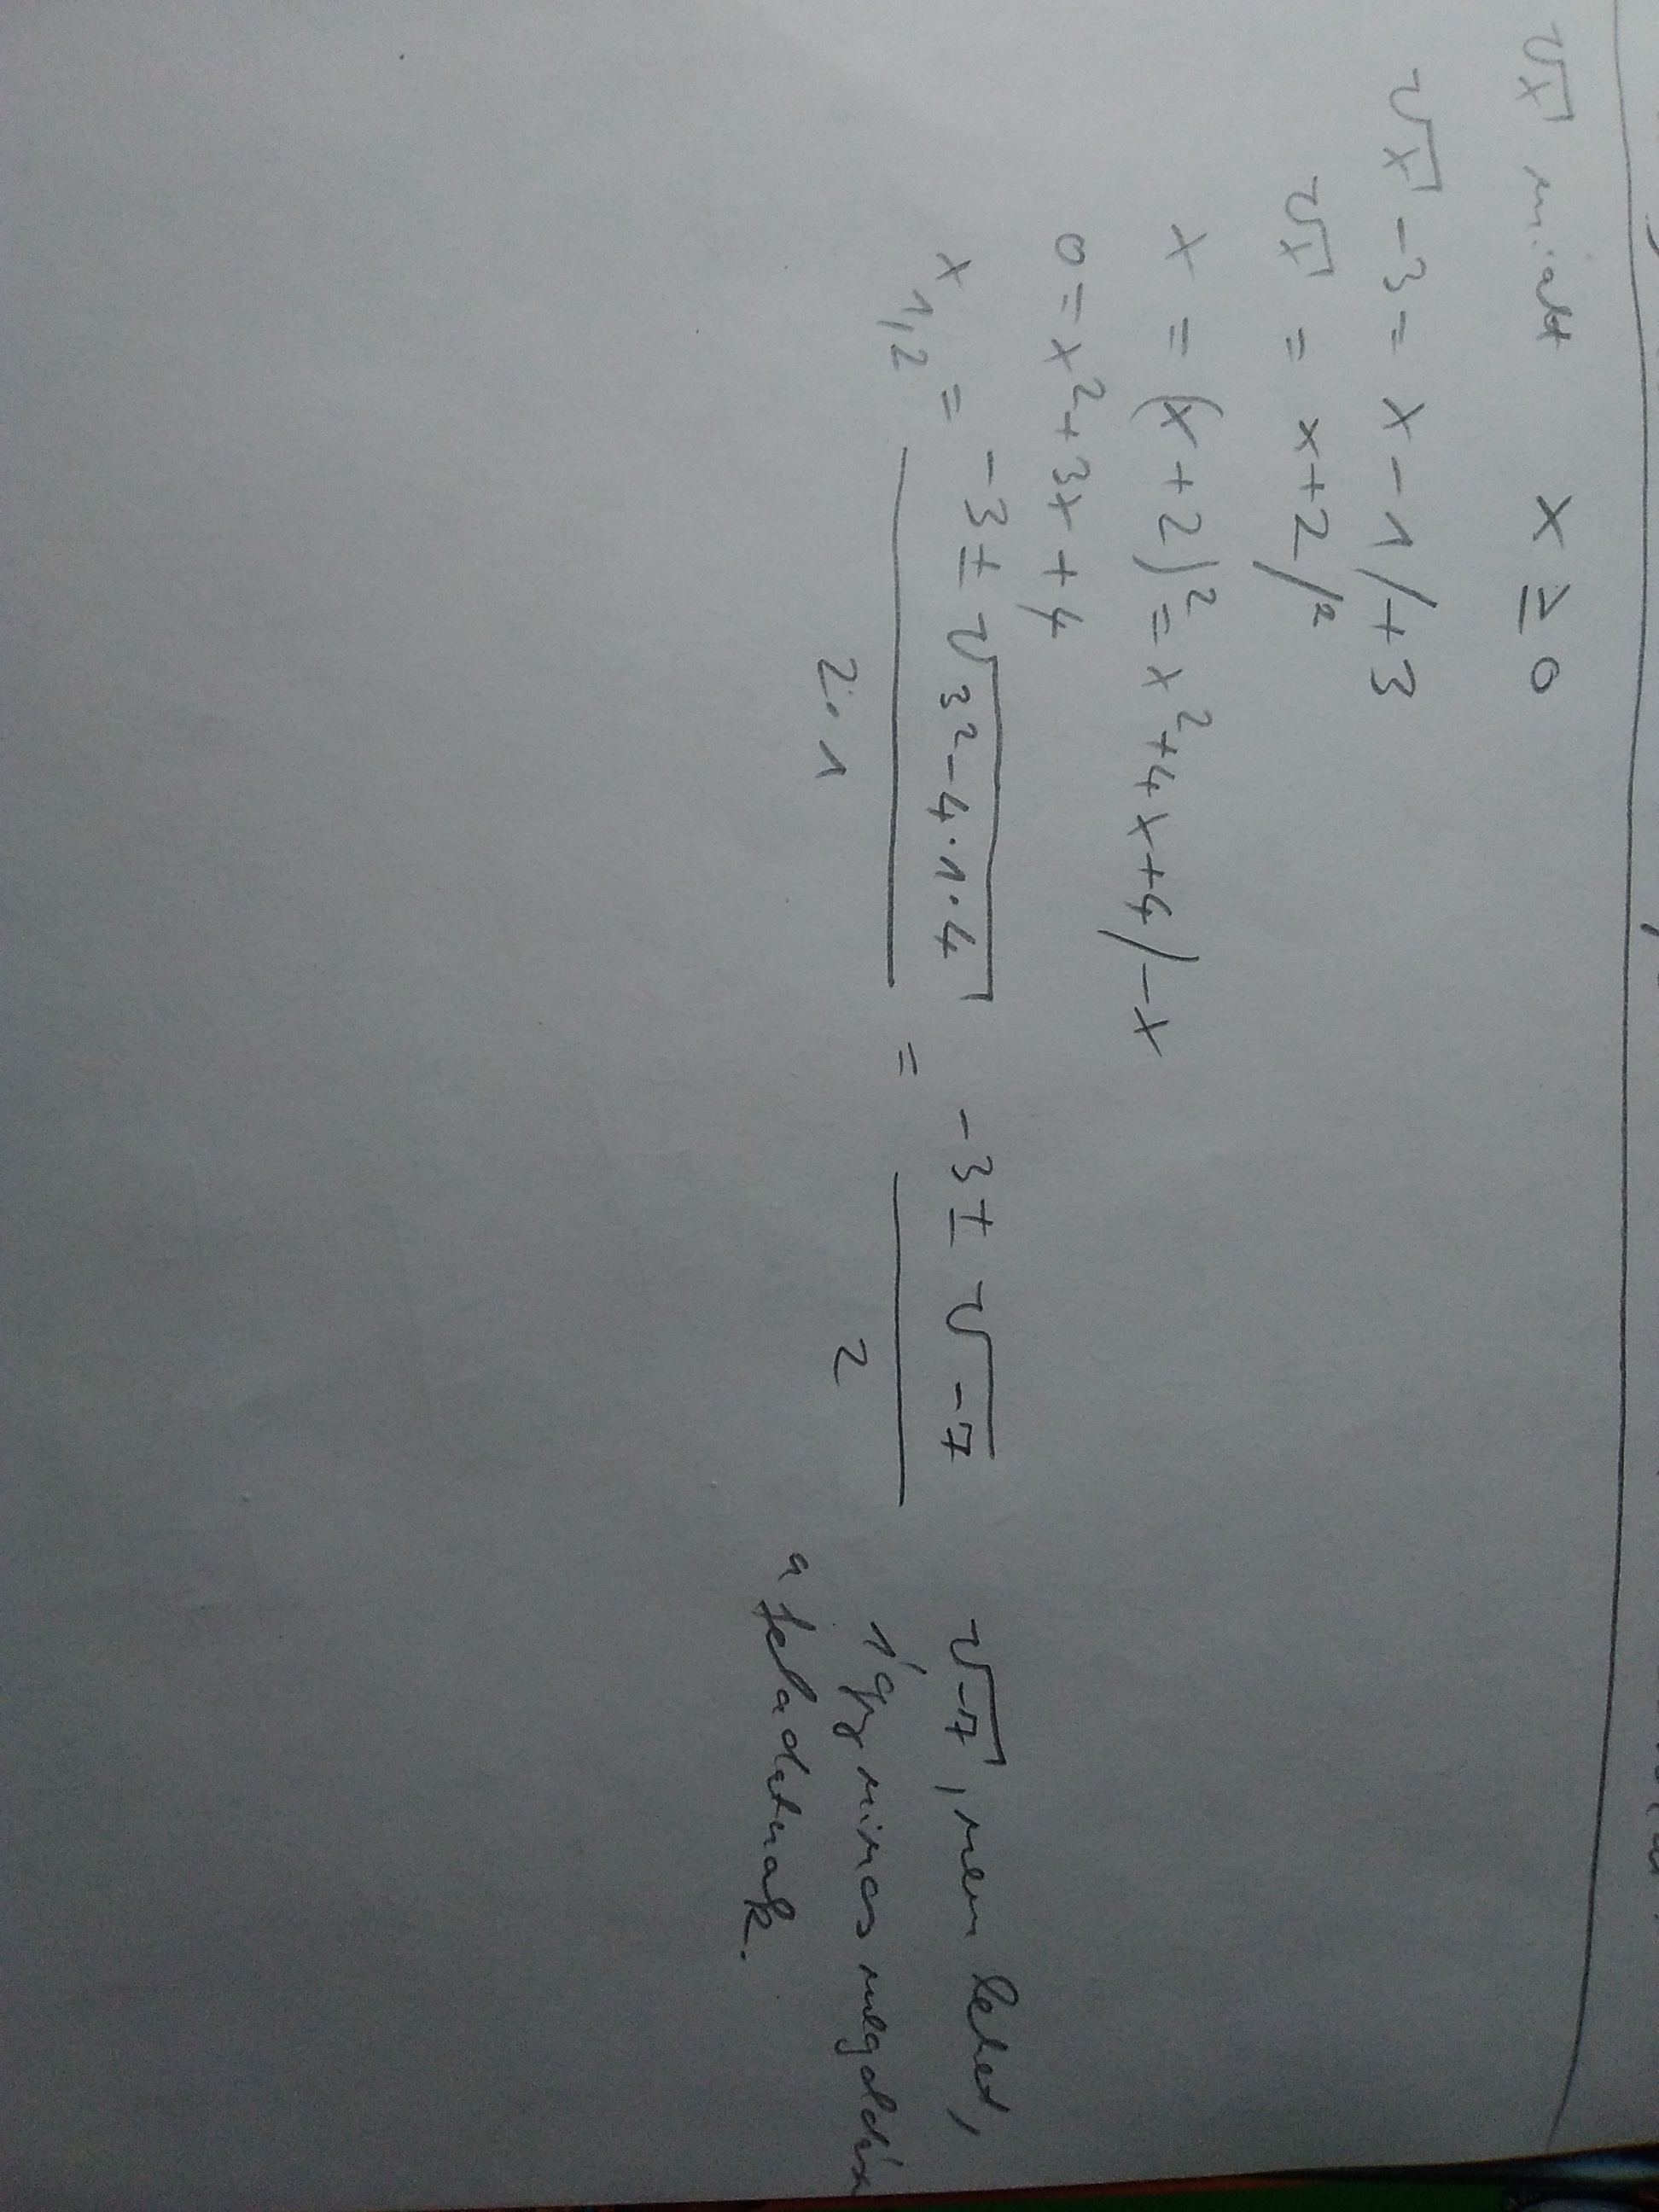 √x miatt x ≥ 0
√x - 3 = x - 1 /+3
√x = x+2 /²
x = (x+2)² = x²+4x+4 /-x
0 = x²+3x+4
x1,2 = (-3±√(3²-4·1·4))/(2·1) = (-3±√-7)/2
√-7, nem lehet,
így nincs megoldása
a feladatnak.